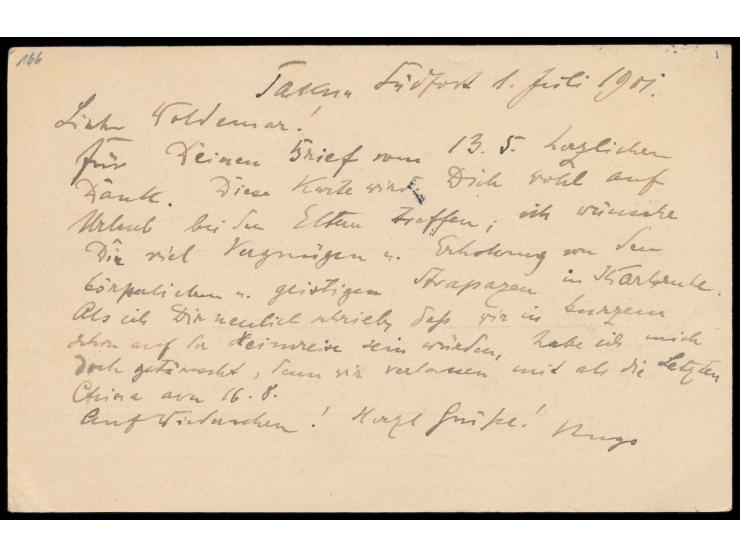 166
Taku Südfort 1. Juli 1901.
Lieber Woldemar!
Für Deinen Brief vom 13. 5. herzlichen
Dank. Diese Karte wird Dich wohl auf
Urlaub bei den Eltern treffen; ich wünsche
Dir viel Vergnügen u. Erholung von den
körperlichen u. geistigen Strapazen in Karlsruhe.
Als ich Dir neulich schrieb, daß wir in kurzem
schon auf der Heimreise sein würden, habe ich mich
doch getäuscht, denn wir verlassen mit als die Letzten
China am 16. 8.
Auf Wiedersehen! Herzl Grüße! Hugo